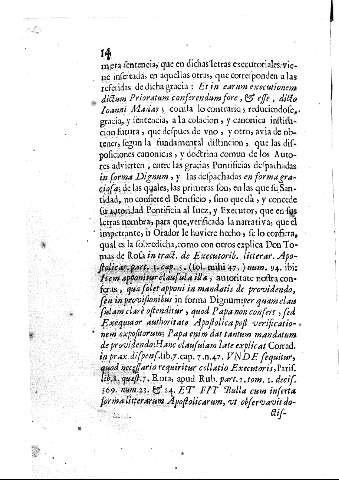 14
ingra sentencia, que en dichas letras executoriales vie-
ne insertada, en aquellas otras, que corresponden a las
referidas de dicha gracia: Et in earum executionem
dictum Prioratum conferendum fore, & esse, dicto
Ioanni Macias; contra lo contrario, reduciendose,
gracia, y sentencia, a la colacion, y canonica institu-
cion futura, que despues de vno, y otro, avia de ob-
tener, segun la fundamental distincion, que las dis-
posiciones canonicas, y doctrina comun de los Auto-
res advierten, entre las gracias Pontificias despachadas
in forma Dignum, y las despachadas en forma gra-
ciosa; de las quales, las primeras son, en las que su San-
tidad, no confiere el Beneficio, sino que dà, y concede
su autoridad Pontificia al Iuez, y Executor, que en sus
letras nombra, para que, verificada la narrativa, que el
impetrante, ù Orador le huviere hecho, se lo confiera,
qual es la sobredicha, como con otros explica Don To-
mas de Rosa in tract. de Executorib. litterar. Apo-
stolicar. part. 1. cap. 5. (fol. mihi 47.) num. 94. ibi:
Item apponitur clausula illa, autoritate nostra con-
feras, quæ solet apponi in mandatis de providendo,
seu in provisionibus in forma Dignum; per quam clau-
sulam clarè ostenditur, quod Papa non confert, sed
Exequutor authoritate Apostolica post verificatio-
nem expositorum; Papa enim dat tantum mandatum
de providendo: Hanc clausulam latè explicat Corrad.
in prax. dispens. lib. 7. cap. 7. n. 47. VNDE sequitur,
quod necessario requiritur collatio Executoris, Paris.
lib. 8. quæst. 7. Rota, apud Rub. part. 2. tom. 2. decis.
569. num. 23. & 24. ET FIT Bulla cum inserta
forma litterarum Apostolicarum, vt observavit do-
ctis-